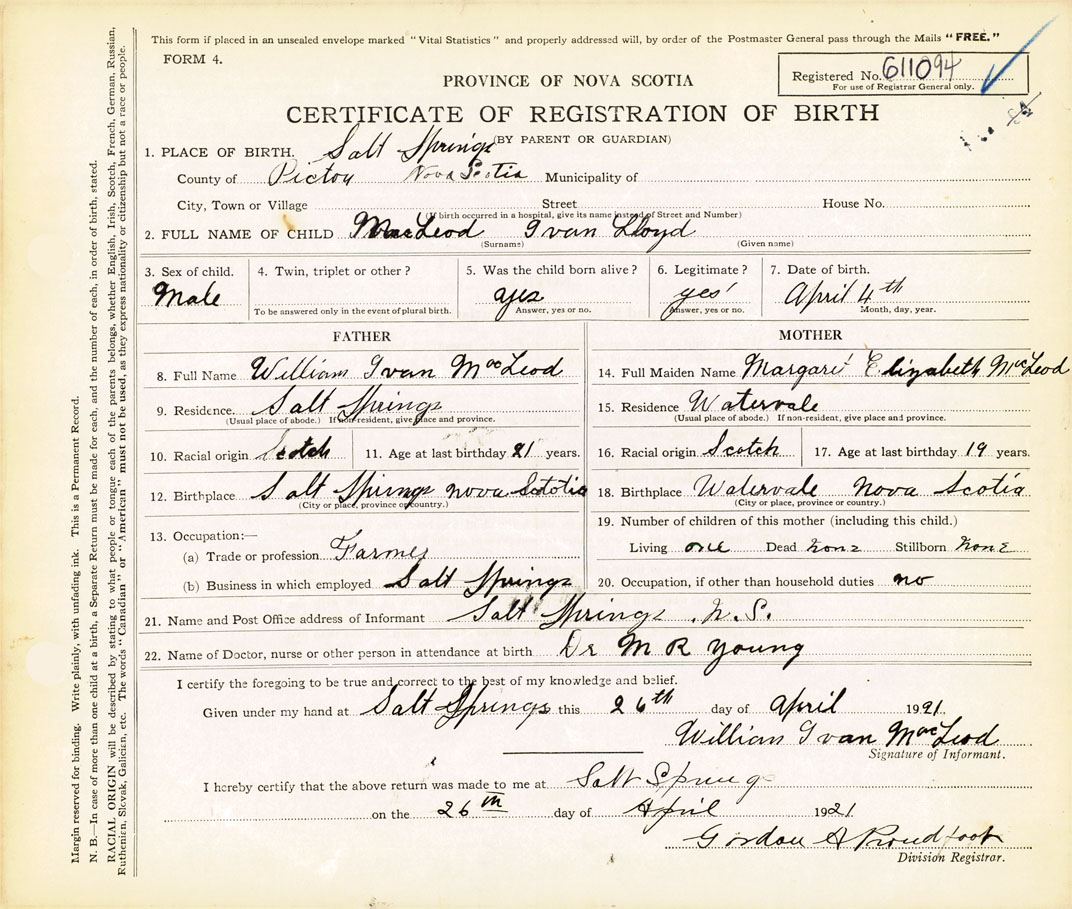 This form if placed in an unsealed envelope marked "Vital Statistics" and properly addressed will, by order of the Postmaster General pass through the Mails "FREE."
FORM 4.
Registered No. 611094
For use of Registrar General only.
PROVINCE OF NOVA SCOTIA
CERTIFICATE OF REGISTRATION OF BIRTH
(BY PARENT OR GUARDIAN)
1. PLACE OF BIRTH. Salt Springs
County of Pictou Nova Scotia Municipality of
City, Town or Village Street House No.
(If birth occurred in a hospital, give its name instead of Street and Number)
2. FULL NAME OF CHILD MacLeod Ivan Lloyd
(Surname) (Given name)
3. Sex of child. 4. Twin, triplet or other? 5. Was the child born alive? 6. Legitimate? 7. Date of birth.
Male yes yes April 4th
To be answered only in the event of plural birth. Answer, yes or no. Answer, yes or no. Month, day, year.
FATHER
8. Full Name William Ivan MacLeod
9. Residence. Salt Springs
(Usual place of abode.) If non-resident, give place and province.
10. Racial origin Scotch 11. Age at last birthday 21 years.
12. Birthplace Salt Springs nova Scototia
(City or place, province or country.)
13. Occupation:—
(a) Trade or profession Farmer
(b) Business in which employed Salt Springs
MOTHER
14. Full Maiden Name Margaret Elizabeth MacLeod
15. Residence Watervale
(Usual place of abode.) If non-resident, give place and province.
16. Racial origin Scotch 17. Age at last birthday 19 years.
18. Birthplace Watervale Nova Scotia
(City or place, province or country.)
19. Number of children of this mother (including this child.)
Living one Dead none Stillborn none
20. Occupation, if other than household duties no
21. Name and Post Office address of Informant Salt Springs . N. S.
22. Name of Doctor, nurse or other person in attendance at birth Dr M R Young
I certify the foregoing to be true and correct to the best of my knowledge and belief.
Given under my hand at Salt Springs this 26th day of April 1921.
William Ivan MacLeod
Signature of Informant.
I hereby certify that the above return was made to me at Salt Springs
on the 26th day of April 1921
Gordon A Proudfoot
Division Registrar.
Margin reserved for binding. Write plainly, with unfading ink. This is a Permanent Record.
N. B.—In case of more than one child at a birth, a Separate Return must be made for each, and the number of each, in order of birth, stated.
RACIAL ORIGIN will be described by stating to what people or tongue each of the parents belongs, whether English, Irish, Scotch, French, German, Russian,
Ruthenian, Slovak, Galician, etc. The words "Canadian" or "American" must not be used, as they express nationality or citizenship but not a race or people.